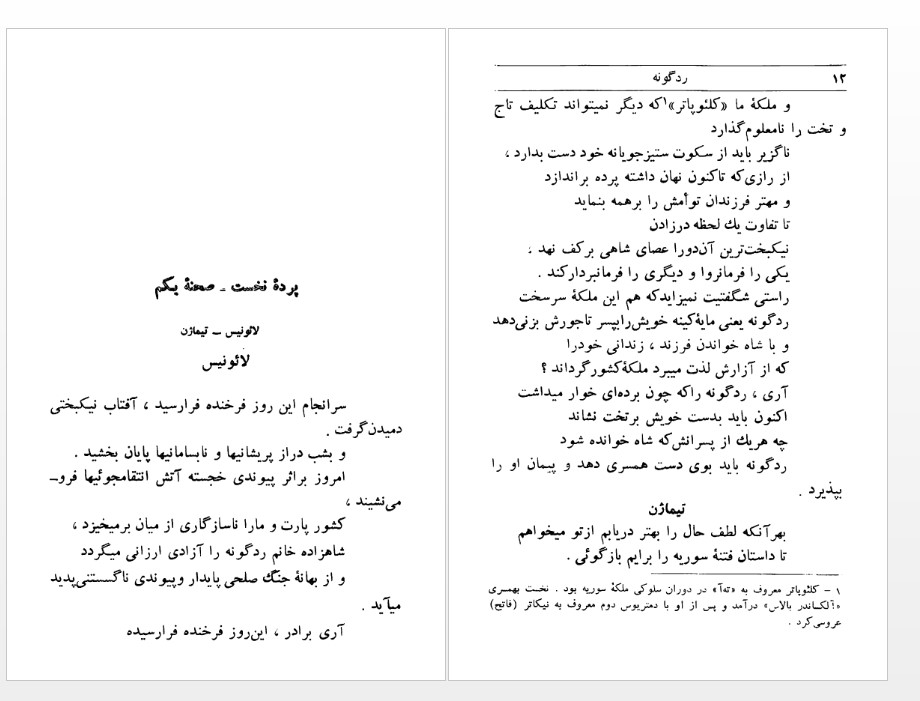 پردهٔ نخست ـ صحنهٔ یکم
لائونیس ــ تیماژن
لائونیس
سرانجام این روز فرخنده فرارسید ، آفتاب نیکبختی
دمیدن‌گرفت .
و بشب دراز پریشانیها و نابسامانیها پایان بخشید .
امروز براثر پیوندی خجسته آتش انتقامجوئیها فروـ
می‌نشیند ،
کشور پارت و مارا ناسازگاری از میان برمیخیزد ،
شاهزاده خانم ردگونه را آزادی ارزانی میگردد
و از بهانهٔ جنگ صلحی پایدار وپیوندی ناگسستنی‌پدید
میآید .
آری برادر ، این‌روز فرخنده فرارسیده
۱۲ ردگونه
و ملکهٔ ما «کلئوپاتر»۱که دیگر نمیتواند تکلیف تاج
و تخت را نامعلوم‌گذارد
ناگزیر باید از سکوت ستیزجویانه خود دست بدارد ،
از رازی‌که تاکنون نهان داشته پرده براندازد
و مهتر فرزندان توأمش را برهمه بنماید
تا تفاوت یك لحظه درزادن
نیکبخت‌ترین آن‌دورا عصای شاهی برکف نهد ،
یکی را فرمانروا و دیگری را فرمانبردارکند .
راستی شگفتیت نمیزایدکه هم این ملکهٔ سرسخت
ردگونه یعنی مایهٔ‌کینه خویش‌رابپسر تاجورش بزنی‌دهد
و با شاه خواندن فرزند ، زندانی خودرا
که از آزارش لذت میبرد ملکهٔ‌کشورگرداند ؟
آری ، ردگونه راکه چون برده‌ای خوار میداشت
اکنون باید بدست خویش برتخت نشاند
چه هریك از پسرانش‌که شاه خوانده شود
ردگونه باید بوی دست همسری دهد و پیمان او را
بپذیرد .
تیماژن
بهرآنکه لطف حال را بهتر دریابم ازتو میخواهم
تا داستان فتنهٔ سوریه را برایم بازگوئی .
۱ – کلئوپاتر معروف به «ته‌آ» در دوران سلوکی ملکهٔ سوریه بود . نخست بهمسری
«آلکساندر بالاس» درآمد و پس از او با دمتریوس دوم معروف به نیکاتر (فاتح)
عروسی‌کرد .